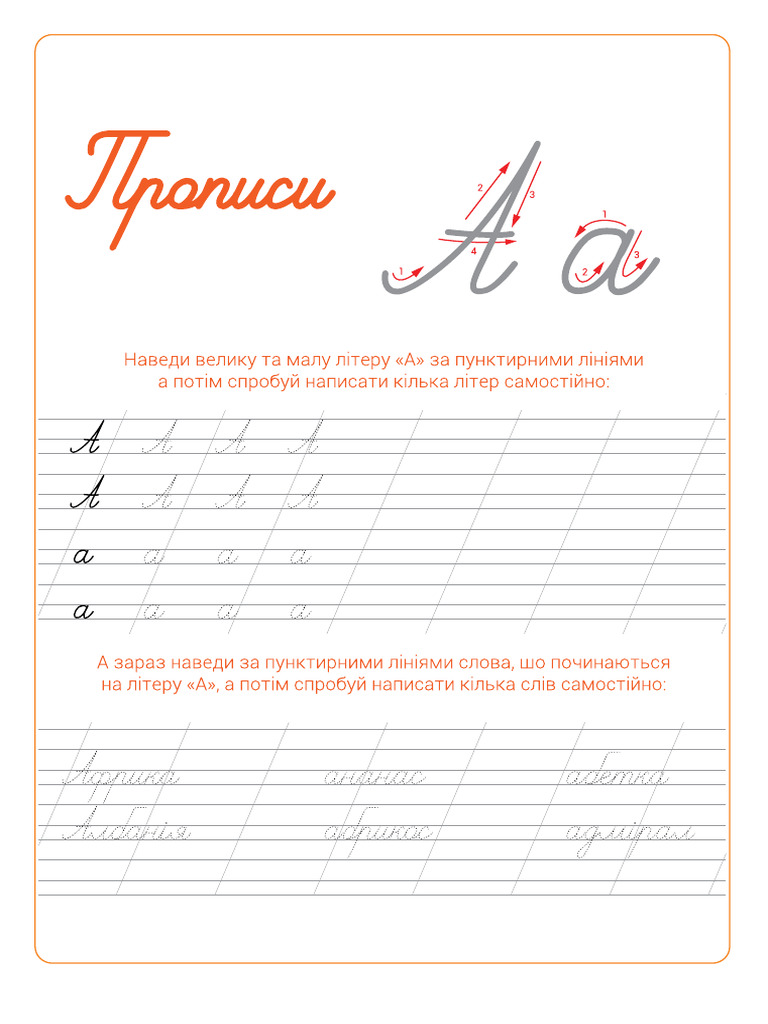 Прописи
А а
1 2 3 4 1 2 3
Наведи велику та малу літеру «А» за пунктирними лініями
а потім спробуй написати кілька літер самостійно:
А А А А
А А А А
а а а а
а а а а
А зараз наведи за пунктирними лініями слова, шо починаються
на літеру «А», а потім спробуй написати кілька слів самостійно:
Африка ананас абетка
Албанія абрикос адмірал